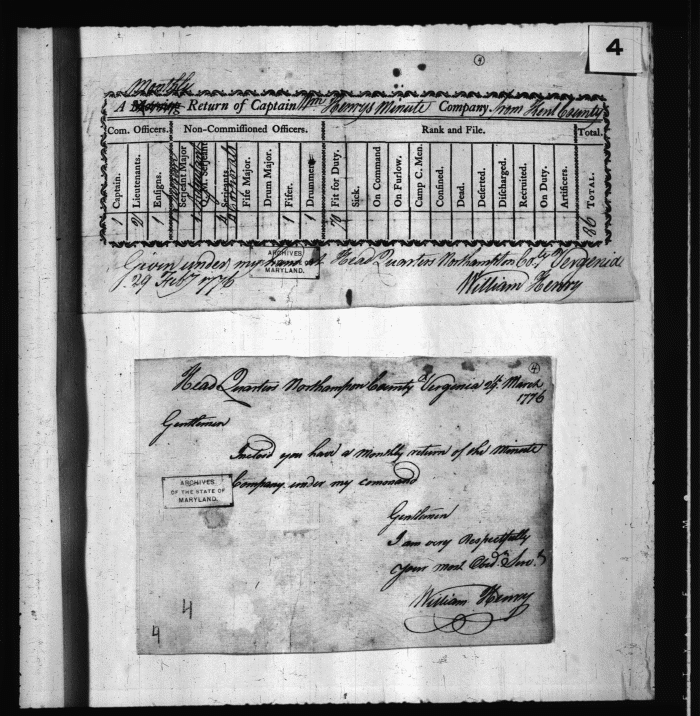 4
(4)
Monthly
A Morning Return of Captain Wm Henrys Minute Company from Kent County
Com. Officers. Non-Commissioned Officers. Rank and File. Total.
Captain. Lieutenants. Ensigns. Serjeant Major Qr. M. Serjeant Serjeants Corporals Fife Major. Drum Major. Fifer. Drummer. Fit for Duty. Sick. On Command On Furlow. Camp C. Men. Confined. Dead. Deserted. Discharged. Recruited. On Duty. Artificers. Total.
1 2 1 1 1 70 86
Given under my hand at Head Quarters Northampton Coty Vergenia
29 Feby 1776 William Henry
ARCHIVES
MARYLAND.
(4)
Head Quarters Northampon County Vergenia March
1776
Gentlemen
Inclosd you have a Monthly return of the Minute
Company under my command
ARCHIVES
OF THE STATE OF
MARYLAND.
Gentlemen
I am very Respectfully
your most Obedt. Servt.
William Henry
4
4